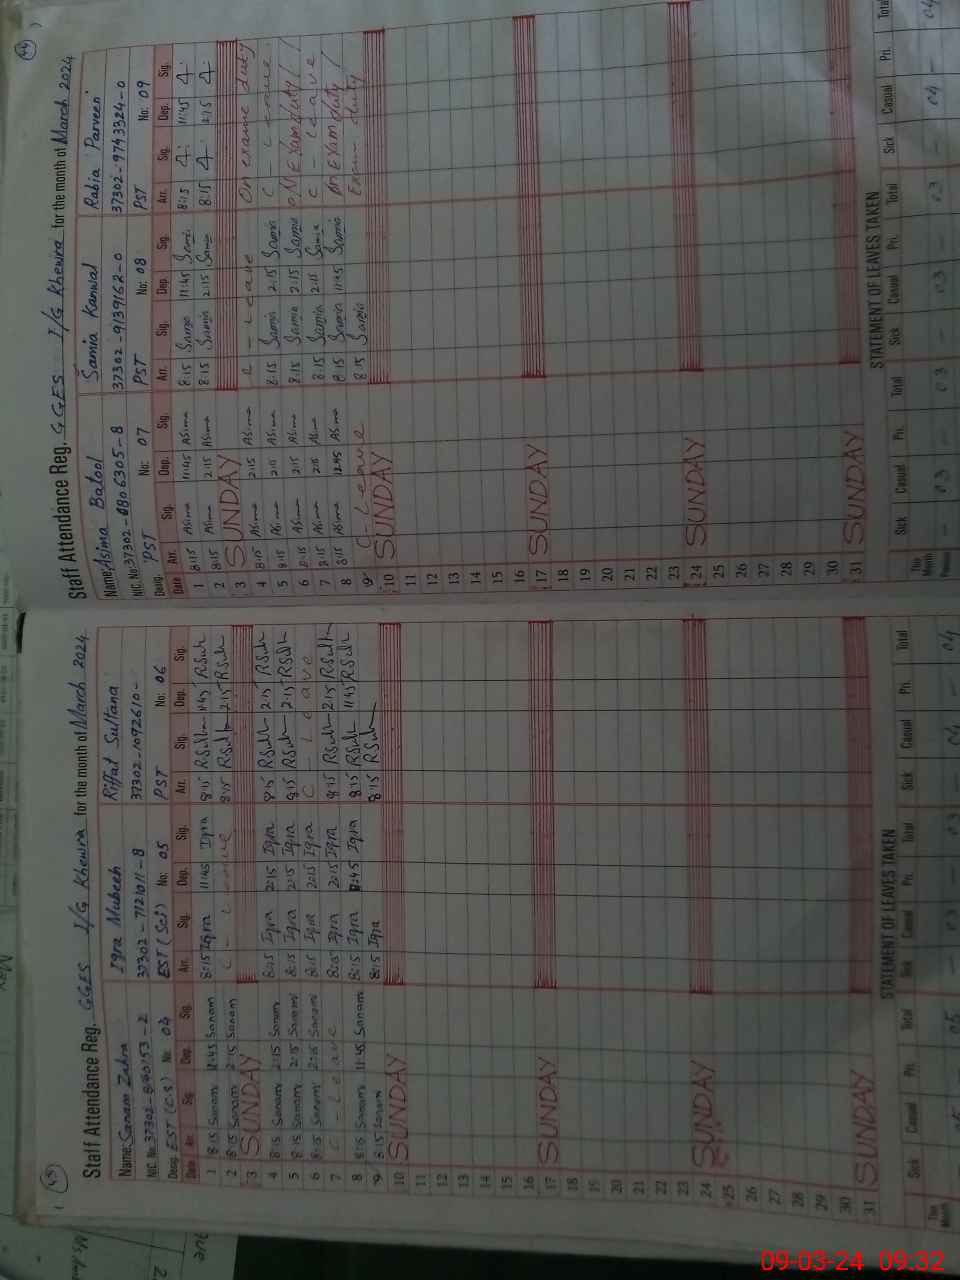 Staff Attendance Reg. GGES I/G Khewra for the month of March 2024
Name: Sanam Zahra Iqra Mubeen Riffat Sultana
NIC. No. 37302- 37302-7121011-8 37302-1092610-
Desig. EST (C.S) No: 04 EST (Sci) No: 05 PST No: 06
Date Arr. Sig. Dep. Sig. Arr. Sig. Dep. Sig. Arr. Sig. Dep. Sig.
1 8:15 Sanam 11:45 Sanam 8:15 Iqra 11:45 Iqra 8:15 11:45
2 8:15 Sanam 2:15 Sanam C - Leave 8:15 2:15
3 SUNDAY
4 8:15 Sanam 2:15 Sanam 8:15 Iqra 2:15 Iqra 8:15 2:15
5 8:15 Sanam 2:15 Sanam 8:15 Iqra 2:15 Iqra 8:15 2:15
6 8:15 Sanam 2:15 Sanam 8:15 Iqra 2:15 Iqra C - Leave
7 C - Leave 8:15 Iqra 2:15 Iqra 8:15 2:15
8 8:15 Sanam 11:45 Sanam 8:15 Iqra Iqra 8:15 11:45
9 8:15 Sanam 8:15 Iqra 8:15
10 SUNDAY
11
12
13
14
15
16
17 SUNDAY
18
19
20
21
22
23
24 SUNDAY
25
26
27
28
29
30
31 SUNDAY
STATEMENT OF LEAVES TAKEN
Sick Casual Pri. Total Sick Casual Pri. Total Sick Casual Pri. Total
This Month 05 - 03 - 03 - 04 - 04
44
Staff Attendance Reg. GGES I/G Khewra for the month of March 2024
Name: Asima Batool Samia Kanwal Rabia Parveen
NIC. No. 37302-0806305-8 37302-9139162-0 37302-9743324-0
Desig. PST No: 07 PST No: 08 PST No: 09
Date Arr. Sig. Dep. Sig. Arr. Sig. Dep. Sig. Arr. Sig. Dep. Sig.
1 8:15 Asima 11:45 Asima 8:15 Samia 11:45 Samia 8:15 11:45
2 8:15 Asima 2:15 Asima 8:15 Samia 2:15 Samia 8:15 2:15
3 SUNDAY
4 8:15 Asima 2:15 Asima C - Leave On exame duty
5 8:15 Asima 2:15 Asima 8:15 Samia 2:15 Samia C - Leave
6 8:15 Asima 2:15 Asima 8:15 Samia 2:15 Samia On Exam duty
7 8:15 Asima 2:15 Asima 8:15 Samia 2:15 Samia C - Leave
8 8:15 Asima 12:45 Asima 8:15 Samia 11:45 Samia On Exam duty
9 C - Leave 8:15 Samia Exam duty
10 SUNDAY
11
12
13
14
15
16
17 SUNDAY
18
19
20
21
22
23
24 SUNDAY
25
26
27
28
29
30
31 SUNDAY
STATEMENT OF LEAVES TAKEN
Sick Casual Pri. Total Sick Casual Pri. Total Sick Casual Pri. Total
This Month - 03 - 03 - 03 - 03 - 04 - 04
Previous
09-03-24 09:32